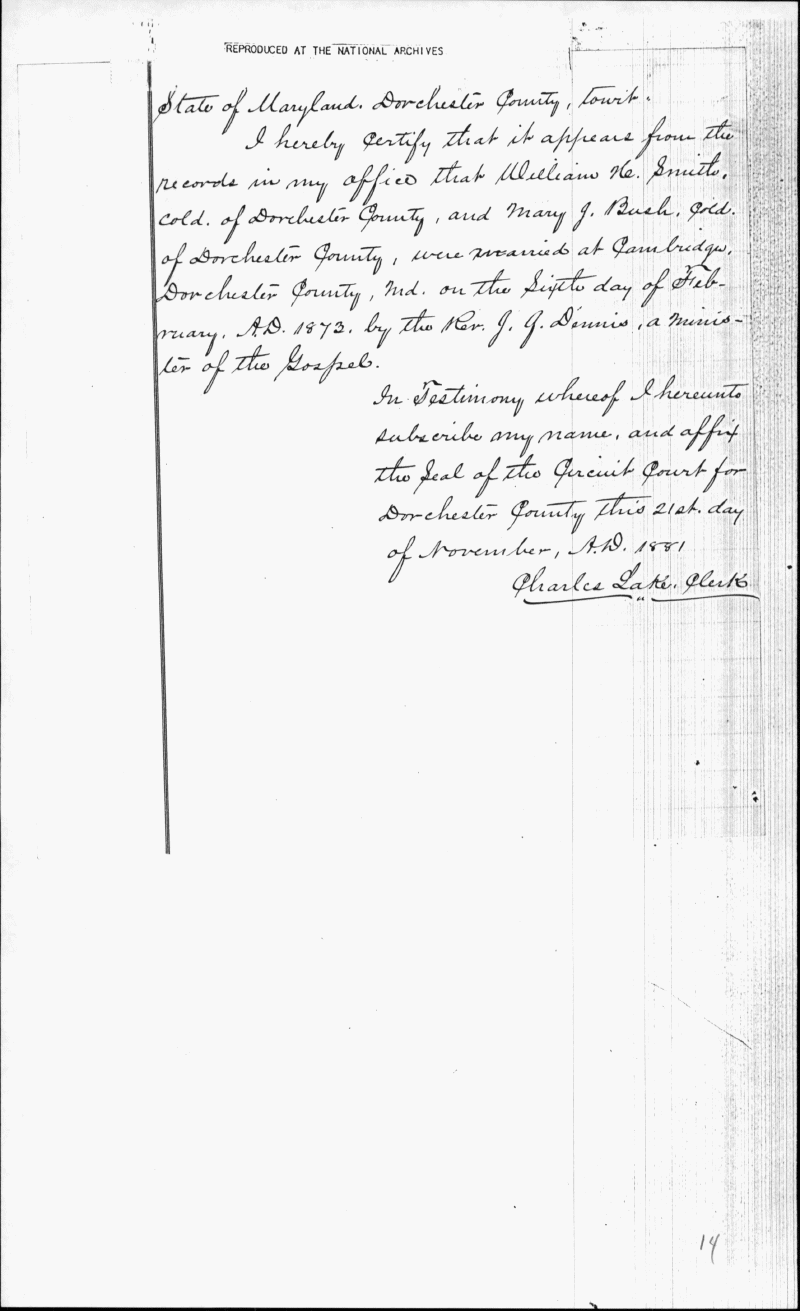 REPRODUCED AT THE NATIONAL ARCHIVES
State of Maryland. Dorchester County, towit.
I hereby Certify that it appears from the
records in my office that William H. Smith,
cold. of Dorchester County, and Mary J. Bush, Cold.
of Dorchester County, were married at Cambridge,
Dorchester County, Md. on the Sixth day of Feb-
ruary, A.D. 1873. by the Rev. J. G. Dennis, a Minis-
ter of the Gospel.
In Testimony whereof I hereunto
subscribe my name, and affix
the Seal of the Circuit Court for
Dorchester County this 21st. day
of November, A.D. 1881
Charles Lake. Clerk
14